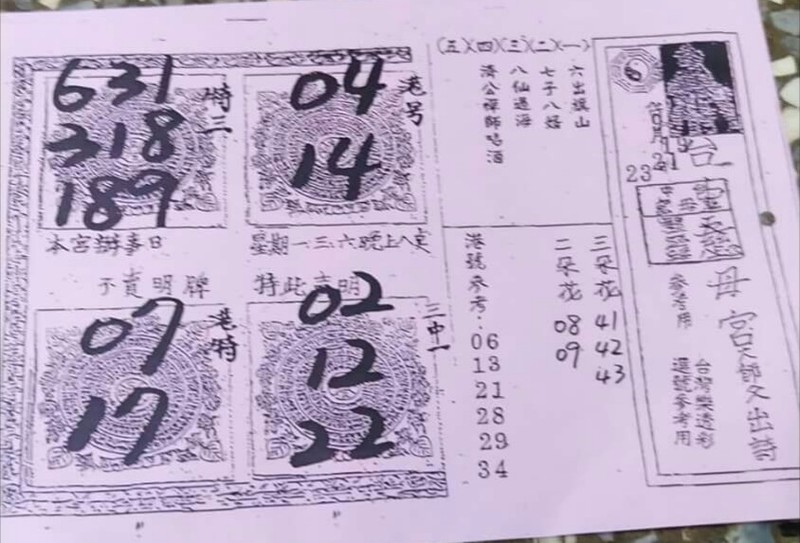 631
318
189
特三
04
14
港号
本宮辦事日
星期一三、六晚上八點
不賣明牌
特此声明
07
17
港特
02
12
22
三中一
(五)(四)(三)(二)(一)
六出旗山
七子八婿
八仙過海
濟公禪師喝酒
三朵花
41
42
43
二朵花
08
09
港號參考：
06
13
21
28
29
34
23
21
母宮
出詩
參考用
台灣樂透彩
選號參考用